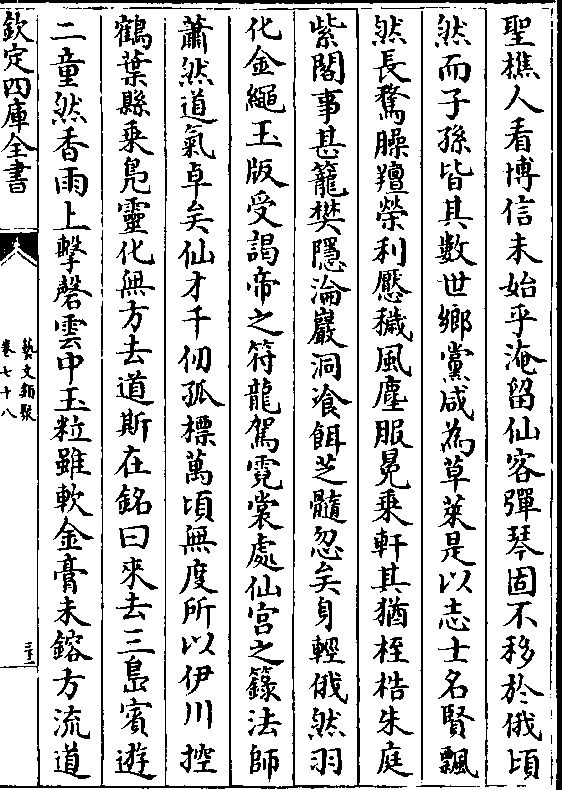 聖樵人看博信未始乎淹留仙客彈琴固不移於俄頃
然而子孫皆其數世鄉黨咸為草萊是以志士名賢飄
然長騖臊羶榮利懕穢風塵服冕乗軒其猶桎梏朱庭
紫閣事甚籠樊隱淪巖洞飡餌芝髓忽矣身輕俄然羽
化金繩玉版受謁帝之符龍駕霓裳處仙宫之籙法師
蕭然道氣卓矣仙才千仞孤標萬頃無度所以伊川控
鶴葉縣乗鳬靈化無方去道斯在銘曰來去三島賓遊
二童然香雨上擊磬雲中玉粒雖軟金膏未鎔方流道
欽定四庫全書
藝文類聚
卷七十八
三十二